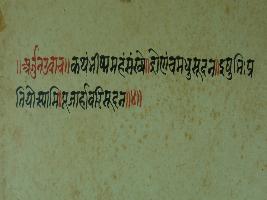 ॥अर्जुनउवाच॥कथंभीष्ममहंसंख्ये॥द्रोणंचमधुसूदन॥इषुभिःप्र
तियोत्स्यामि॥पूजार्हावरिसूदन॥४॥